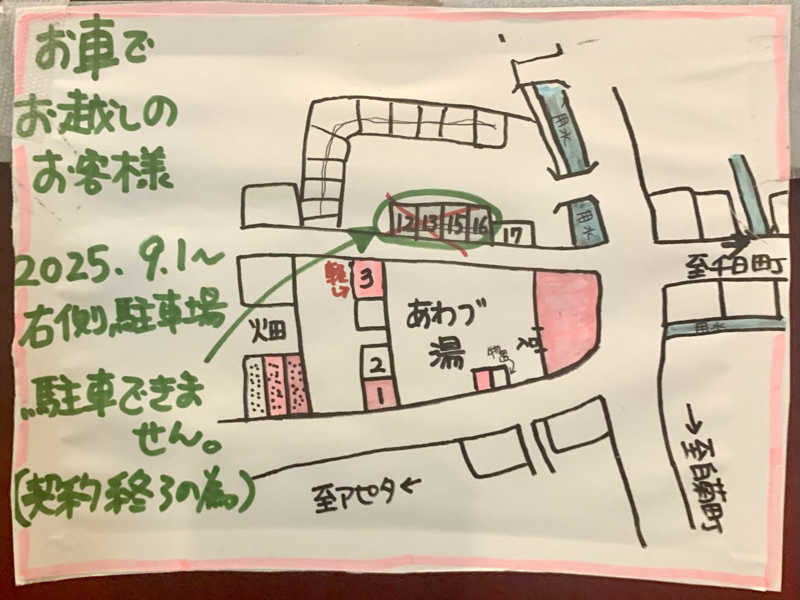 お車で
お越しの
お客様
2025. 9.1～
右側駐車場
駐車できま
せん。
(契約終了の為。)
用水
用水
12
13
15
16
17
至千日町
用水
軽い
3
畑
あわづ
湯
入口
2
1
至白菊町
至アピタ